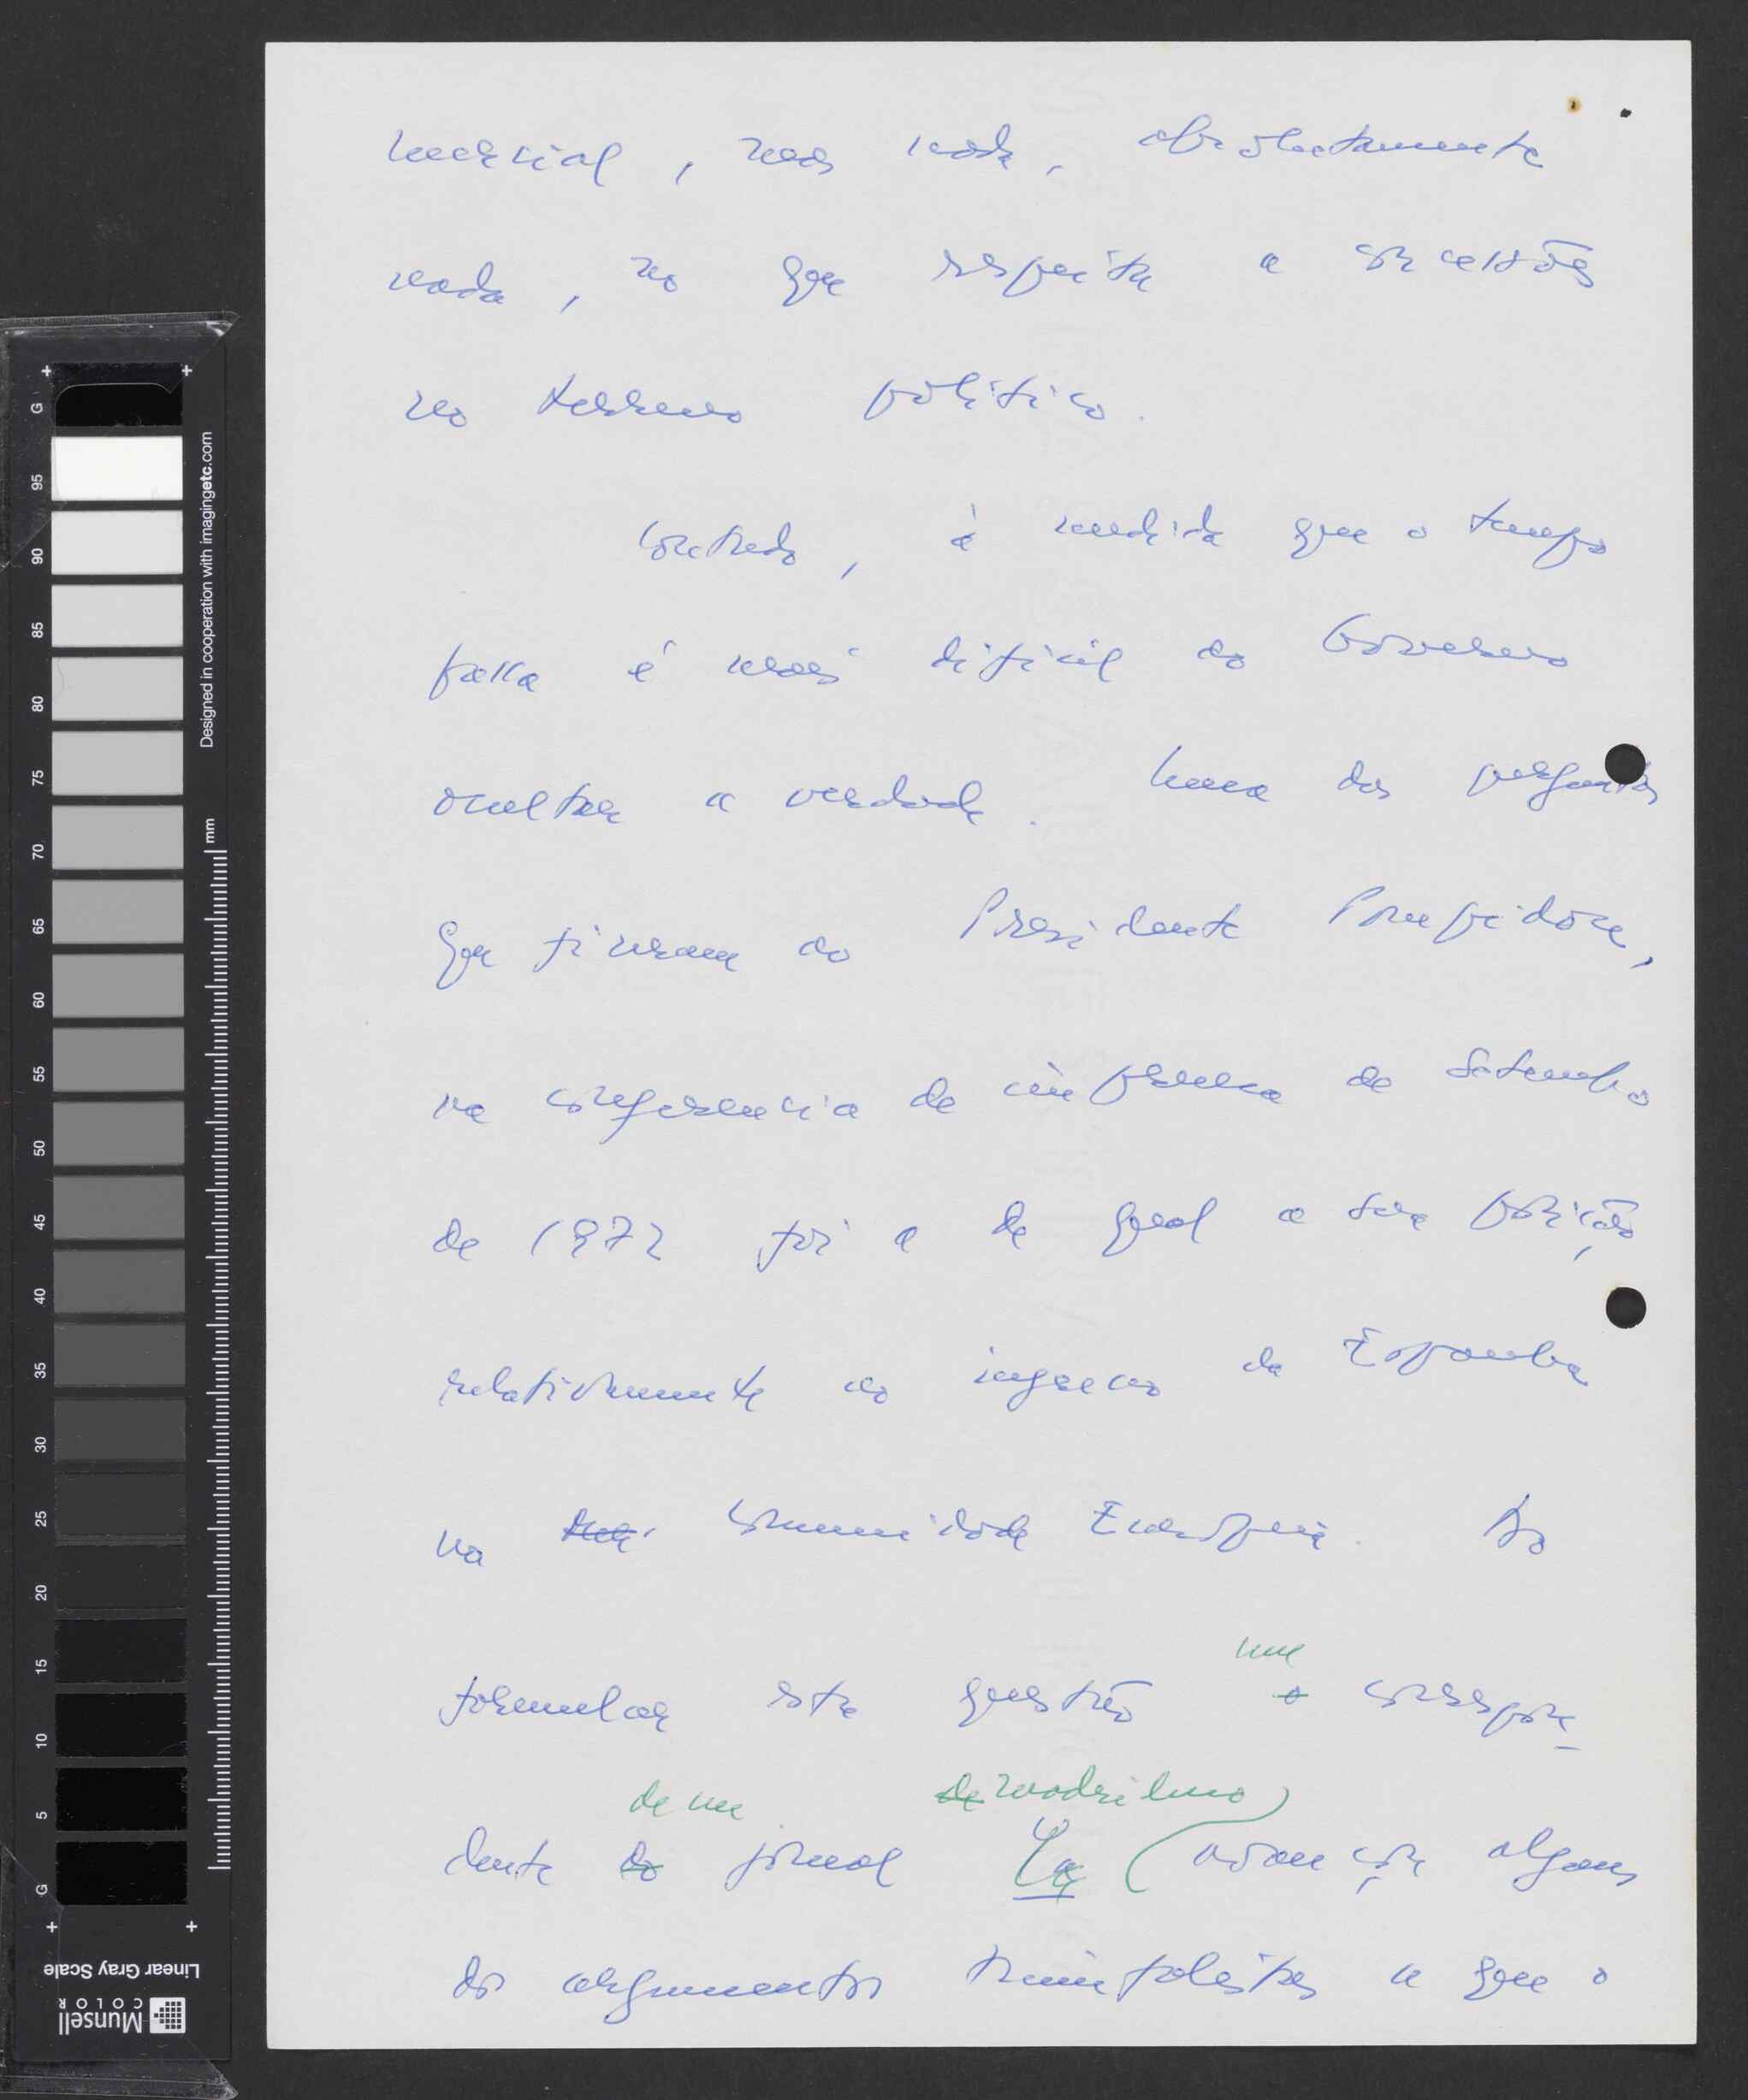 mercial, mas nada, absolutamente
nada, no que respeita a concessões
no terreno político.
Contudo, à medida que o tempo
passa é mais difícil ao Governo
ocultar a verdade. Uma das perguntas
que fizeram ao Presidente Pompidou,
na conferencia de imprensa de Setembro
de 1972 foi a de qual a sua posição
relativamente ao ingresso da Espanha
na Comunidade Europeia. Ao
um
formular esta questão o correspon
de um de madrileno
dente do jornal Ya avançou alguns
dos argumentos triunfalistas a que o
G 95 90 85 80 75 70 65 60 55 50 45 40 35 30 25 20 15 10 5 G
mm
Designed in cooperation with imagingetc.com
Linear Gray Scale
Munsell
COLOR